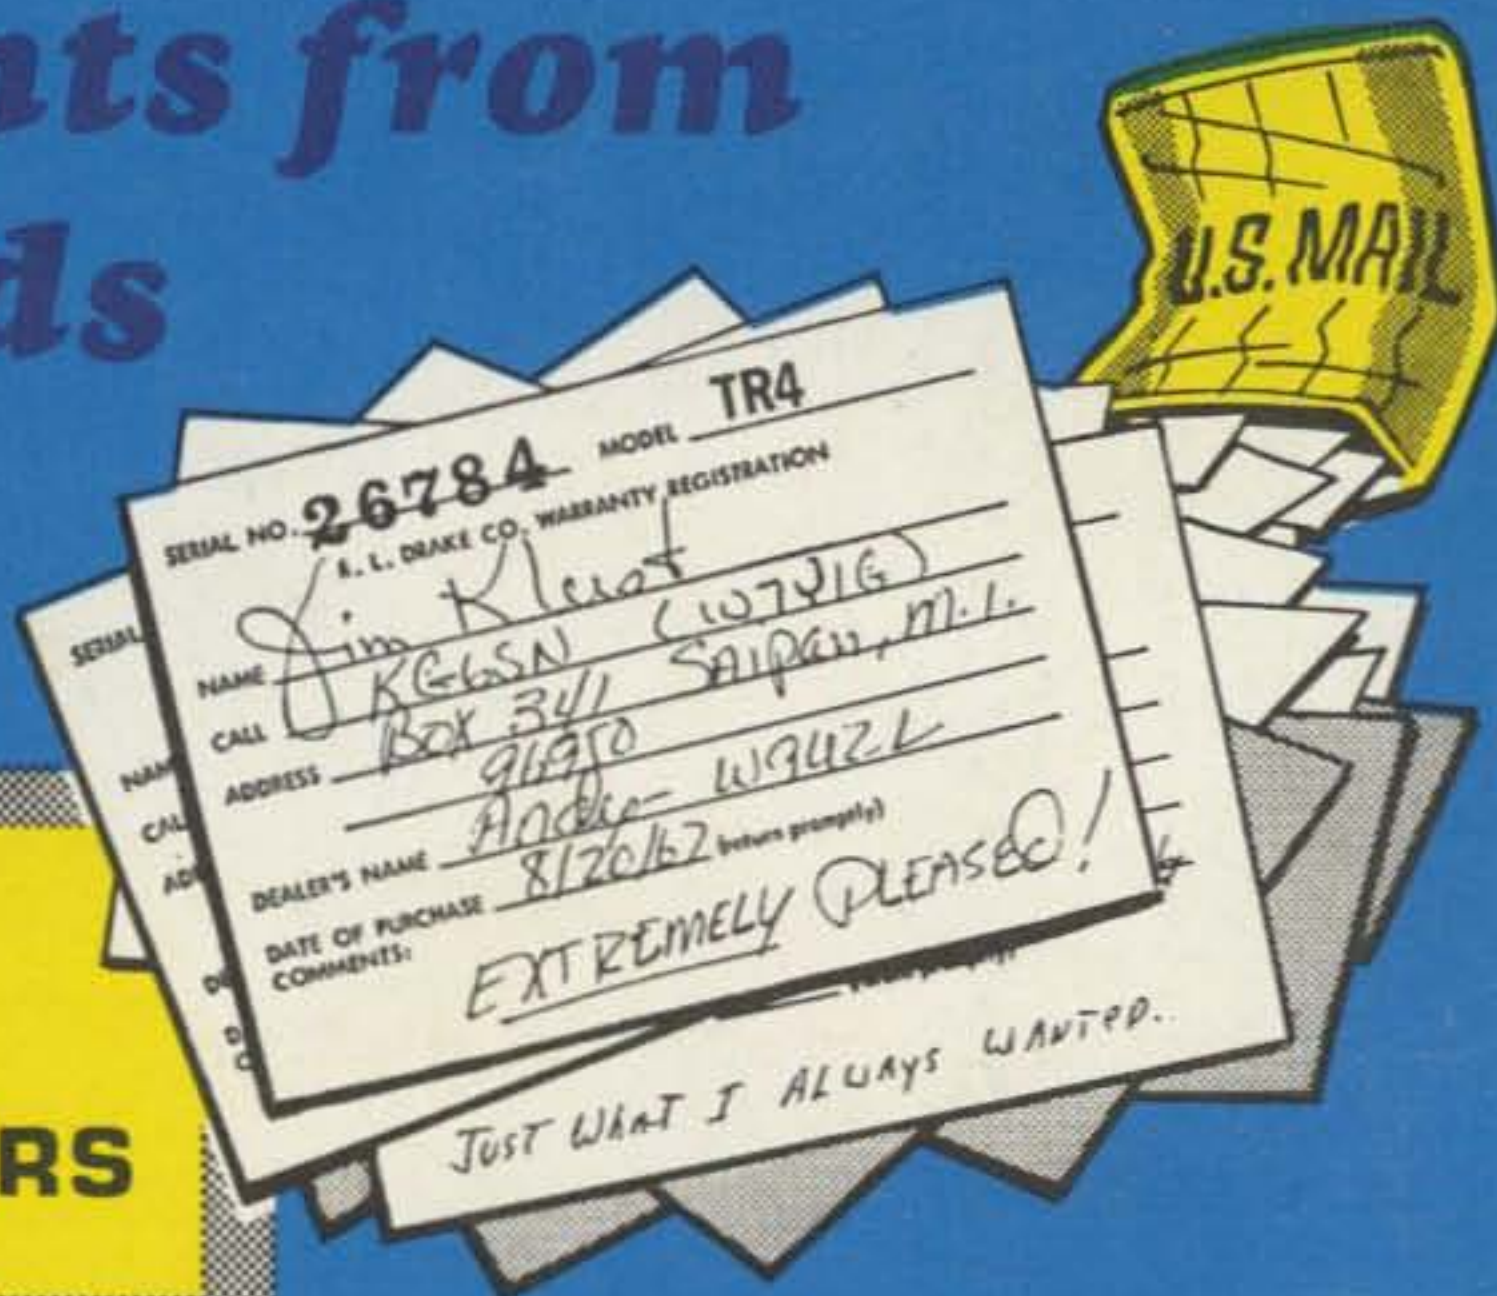 nts from
ds
U.S. MAIL
SERIAL NO. 26784 MODEL TR4
R. L. DRAKE CO. WARRANTY REGISTRATION
NAME Jim
CALL KG6SN (W7VIG)
ADDRESS Box 341 Saipan, M.I.
96950
DEALER'S NAME Andy- W9UZL
DATE OF PURCHASE 8/20/67 (return promptly)
COMMENTS:
EXTREMELY PLEASED!
SERIAL
NAM
CAL
AD
JUST WhAT I ALWAys WANTED.
RS